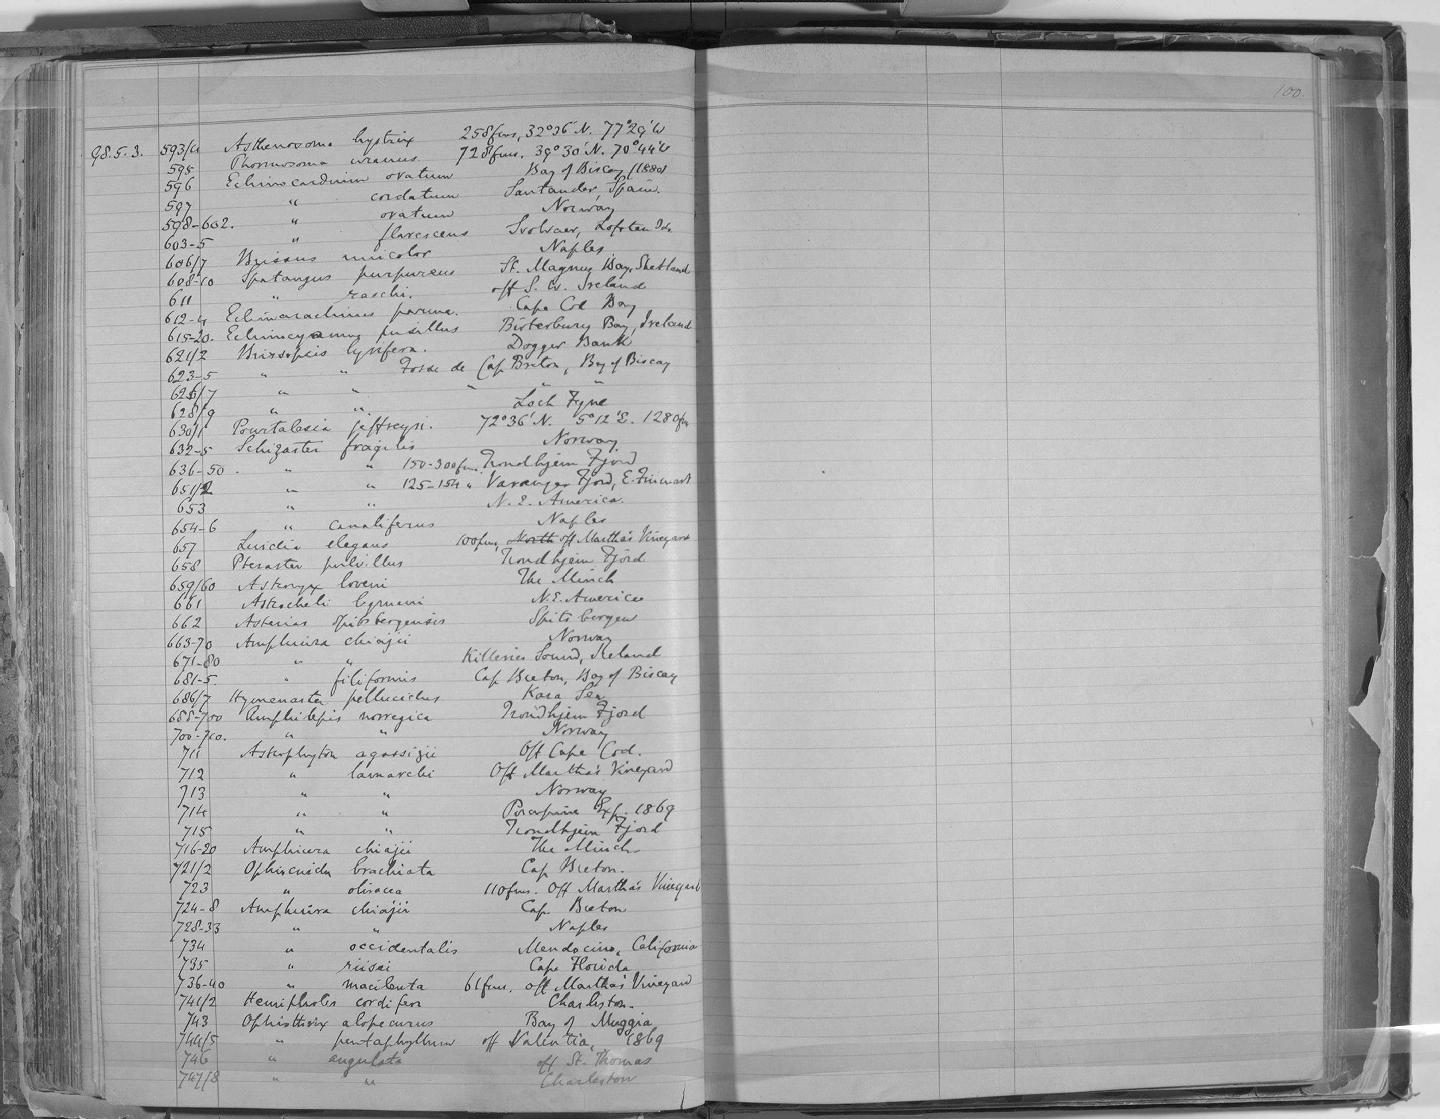 100.
98.5.3. 593/4 Asthenosoma hystrix 258 fms, 32°36' N. 77°29' W
595 Phormosoma uranus 728 fms. 39°30' N. 70°44' W
596 Echinocardium ovatum Bay of Biscay (1880)
597 " cordatum Santander, Spain.
598-602. " ovatum Norway
603-5 " flavescens Svolvaer, Lofoten Ids
606/7 Brissus unicolor Naples
608-10 Spatangus purpureus St. Magnus Bay, Shetland
611 " raschi. off S.W. Ireland
612-4 Echinarachnius parma. Cape Cod Bay
615-20. Echinocyamus pusillus Birterbury Bay, Ireland
621/2 Brissopsis lyrifera. Dogger Bank
623-5 " " Fosse de Cap Breton, Bay of Biscay
626/7 " " " " "
628/9 " " Loch Fyne
630/1 Pourtalesia jeffreysi. 72°36' N. 5°12' E. 1280 fm
632-5 Schizaster fragilis Norway
636-50. " " 150-300 fms. Trondhjem Fjord
651/2 " " 125-154 " Varanger Fjord, E. Finmark
653 " " N.E. America.
654-6 " canaliferus Naples
657 Luidia elegans 100 fms, North off Martha's Vineyard
658 Pteraster pulvillus Trondhjem Fjord
659/60 Astronyx loveni The Minch
661 Astrochele lymani N.E. America
662 Asterias spitsbergensis Spitsbergen
663-70 Amphiura chiajii Norway
671-80 " " Killeries Sound, Ireland
681-5. " filiformis Cap Breton, Bay of Biscay
686/7 Hymenaster pellucidus Kara Sea
688-700 Amphilepis norvegica Trondhjem Fjord
700-710. " " Norway
711 Astrophyton agassizii Off Cape Cod.
712 " lamarcki Off Martha's Vineyard
713 " " Norway
714 " " Porcupine Exp. 1869
715 " " Trondhjem Fjord
716-20 Amphiura chiajii The Minch
721/2 Ophiocnida brachiata Cap Breton.
723 " olivacea 110 fms. Off Martha's Vineyard
724-8 Amphiura chiajii Cap Breton
728-33 " " Naples
734 " occidentalis Mendocino, California
735 " riisei Cape Florida
736-40 " macilenta 61 fms. off Martha's Vineyard
741/2 Hemipholis cordifera Charleston.
743 Ophiothrix alopecurus Bay of Muggia
744/5 " pentaphyllum off Valentia, 1869
746 " angulata off St. Thomas
747/8 " " Charleston